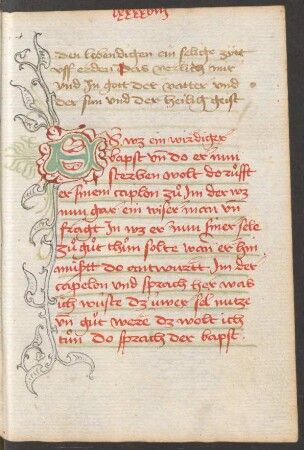 lxxxxviii
den lebendigen ein selige zytt
vff erden Das verlich mir
vnd In gott der vatter vnd
der sun vnd der heilig geist
Es wz ein wirdiger
bapst vn do er nun
sterben wolt do rüfft
er sinem caplon zů Im der wz
nun gar ein wiser man vn
fragt In wz er nun siner sele
zů gůt thůn solte wan er hin
můstt do antwurtt Im der
capelon vnd sprach her was
ich wuste dz üwer sel nutze
vn gůt were dz wolt ich
tůn do sprach der bapst